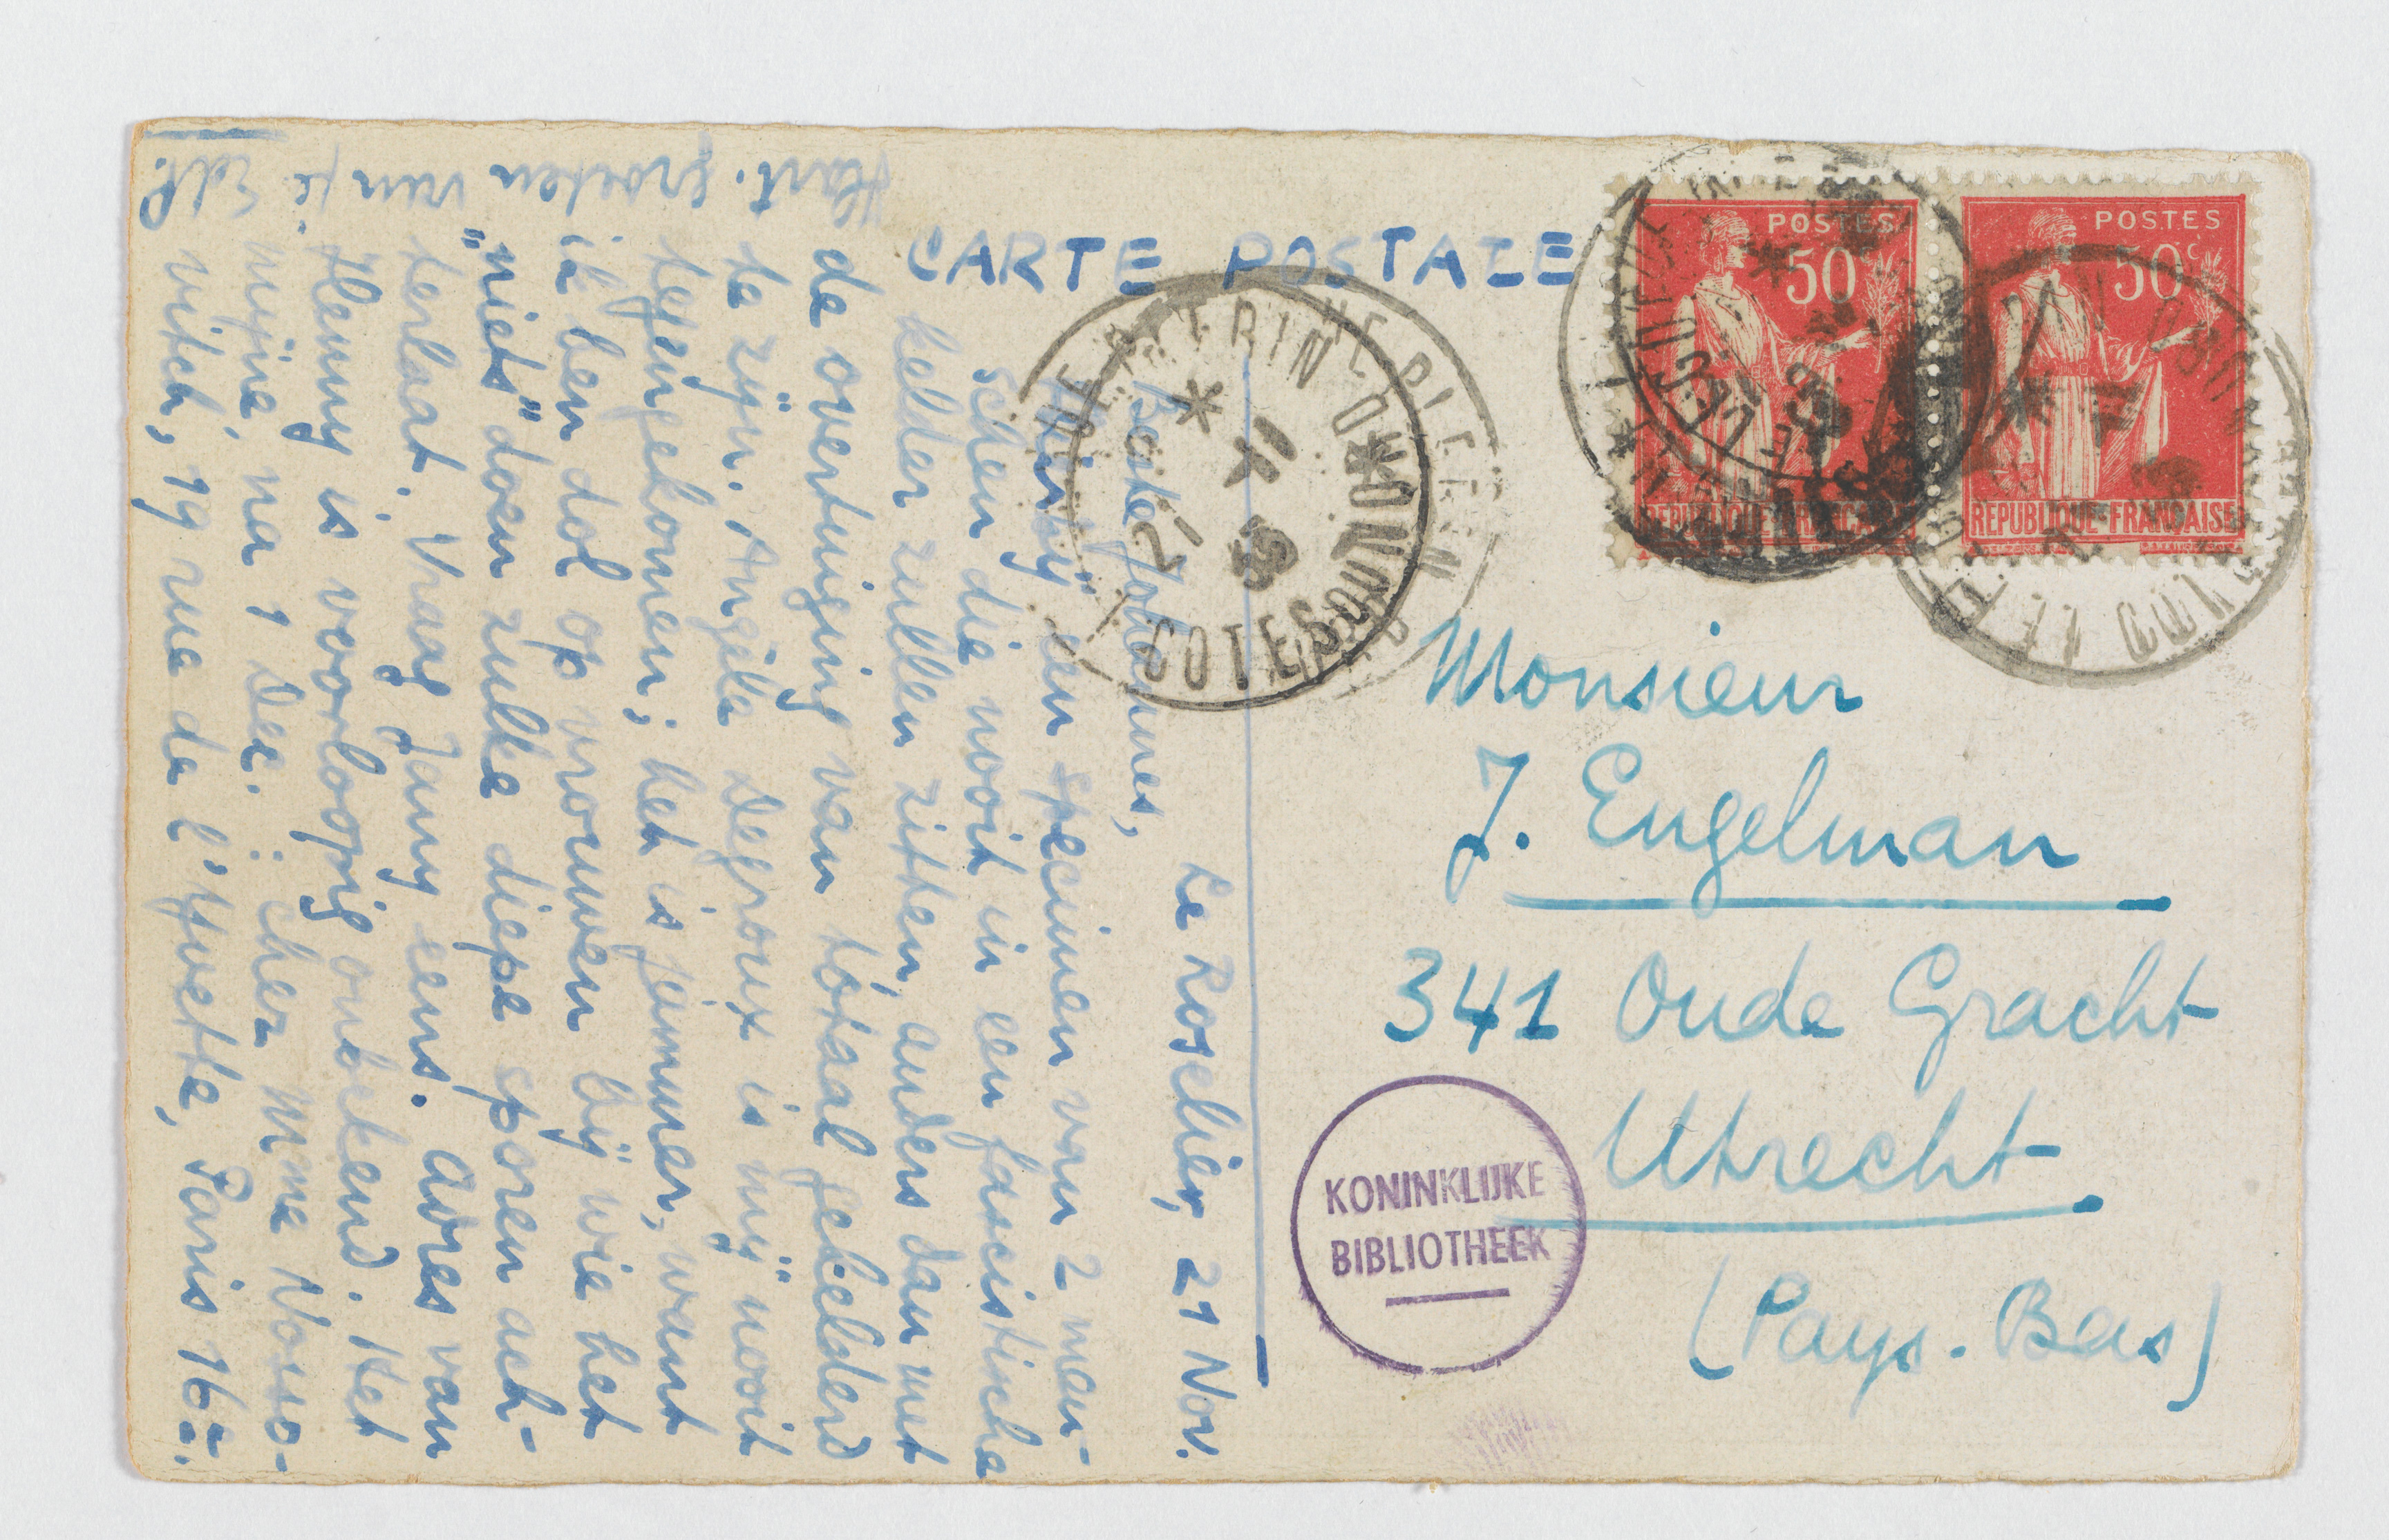 CARTE POSTALE
Le Roselier, 21 Nov.
Beste Johannes,
Hierbij een specimen van 2 men-
schen die nooit in een fascistische
kelder zullen zitten, anders dan met
de overtuiging van totaal gekelderd
te zijn. Angèle Degroux is mij nooit
tegengekomen; het is jammer, want
ik ben dol op vrouwen bij wie het
„niets” doen zulke diepe sporen ach-
terlaat. Vraag Jany eens. Adres van
Henny is voorloopig onbekend. Het
mijne, na 1 Dec.: chez Mme Voso-
vitch, 19 rue de l'Yvette, Paris 16e.
Hart. groeten van je
EdP.
POSTES
50c
REPUBLIQUE FRANÇAISE
POSTES
50c
REPUBLIQUE-FRANÇAISE
COTES DU NORD
Monsieur
J. Engelman
341 Oude Gracht
Utrecht
(Pays-Bas)
KONINKLIJKE
BIBLIOTHEEK